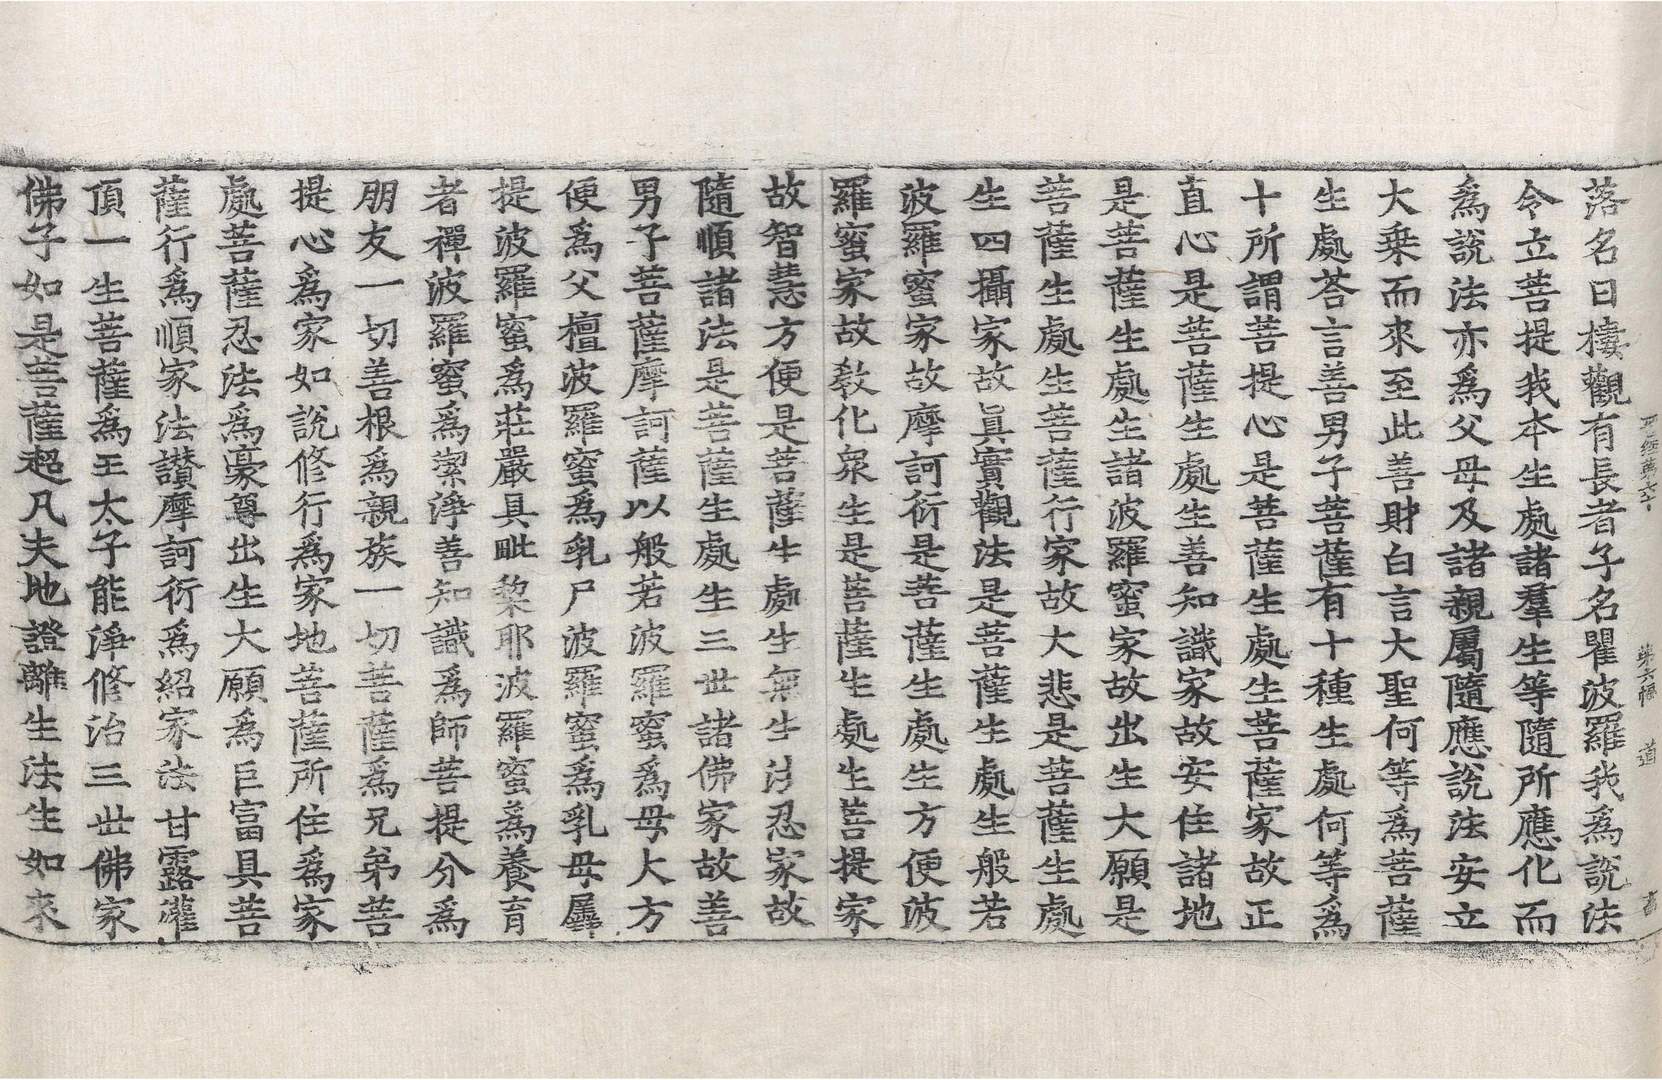 落名曰樓觀有長者子名瞿波羅我為說法
令立菩提我本生處諸羣生等隨所應化而
為說法亦為父母及諸親屬隨應說法安立
大乗而來至此善財白言大聖何等為菩薩
生處荅言善男子菩薩有十種生處何等為
十所謂菩提心是菩薩生處生菩薩家故正
直心是菩薩生處生善知識家故安住諸地
是菩薩生處生諸波羅蜜家故出生大願是
菩薩生處生菩薩行家故大悲是菩薩生處
生四攝家故眞實觀法是菩薩生處生般若
波羅蜜家故摩訶衍是菩薩生處生方便波
羅蜜家故敎化衆生是菩薩生處生菩提家
故智慧方便是菩薩生處生無生法忍家故
隨順諸法是菩薩生處生三世諸佛家故善
男子菩薩摩訶薩以般若波羅蜜為母大方
便為父檀波羅蜜為乳尸波羅蜜為乳母羼
提波羅蜜為莊嚴具毗棃耶波羅蜜為養育
者禪波羅蜜為潔淨善知識為師菩提分為
朋友一切善根為親族一切菩薩為兄弟菩
提心為家如說修行為家地菩薩所住為家
處菩薩忍法為豪尊出生大願為巨富具菩
薩行為順家法讃摩訶衍為紹家法甘露灌
頂一生菩薩為王太子能淨修治三世佛家
佛子如是菩薩超凡夫地證離生法生如來
第六幅 道